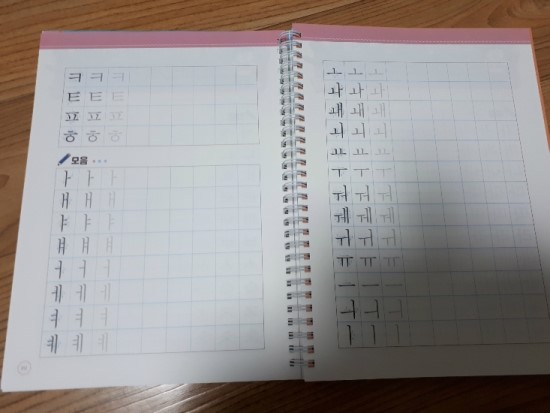 ㅋ ㅋ ㅋ
ㅌ ㅌ ㅌ
ㅍ ㅍ ㅍ
ㅎ ㅎ ㅎ
모음
ㅏ ㅏ ㅏ
ㅐ ㅐ ㅐ
ㅑ ㅑ ㅑ
ㅒ ㅒ ㅒ
ㅓ ㅓ ㅓ
ㅔ ㅔ ㅔ
ㅕ ㅕ ㅕ
ㅖ ㅖ ㅖ
ㅗ ㅗ ㅗ
ㅘ ㅘ ㅘ
ㅙ ㅙ ㅙ
ㅚ ㅚ ㅚ
ㅛ ㅛ ㅛ
ㅜ ㅜ ㅜ
ㅝ ㅝ ㅝ
ㅞ ㅞ ㅞ
ㅟ ㅟ ㅟ
ㅠ ㅠ ㅠ
ㅡ ㅡ ㅡ
ㅢ ㅢ ㅢ
ㅣ ㅣ ㅣ